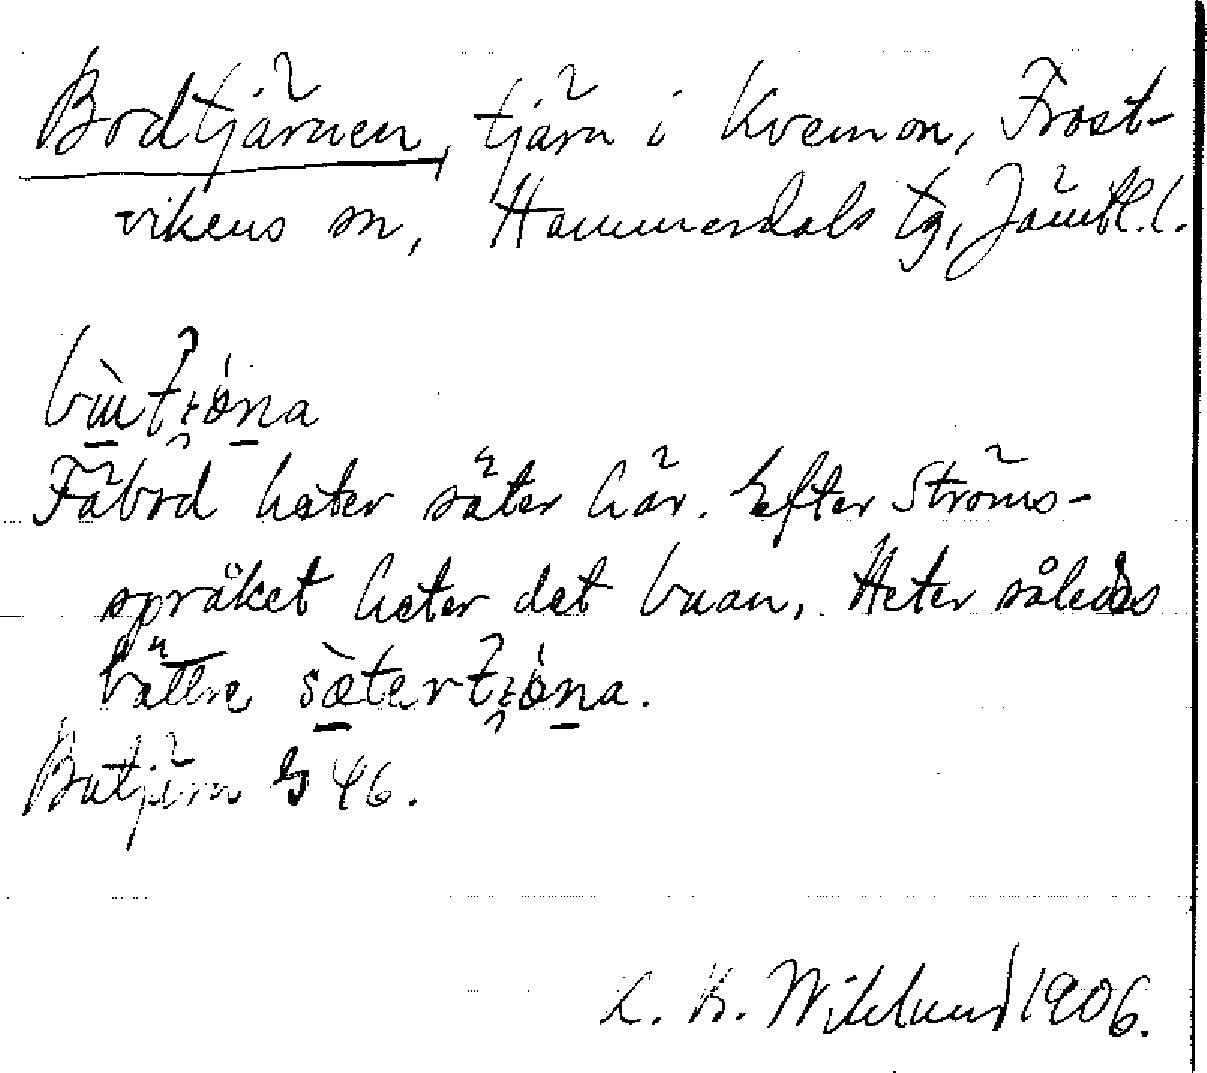 Bodtjärnen, tjärn i Kvemon, Frost-
vikens sn, Hammerdals tg, Jämtl. l.
Fäbod heter säter här. Efter Ströms-
språket heter det buan. Heter således
bättre
Butjärn G 46.
K. B. Wiklund 1906.